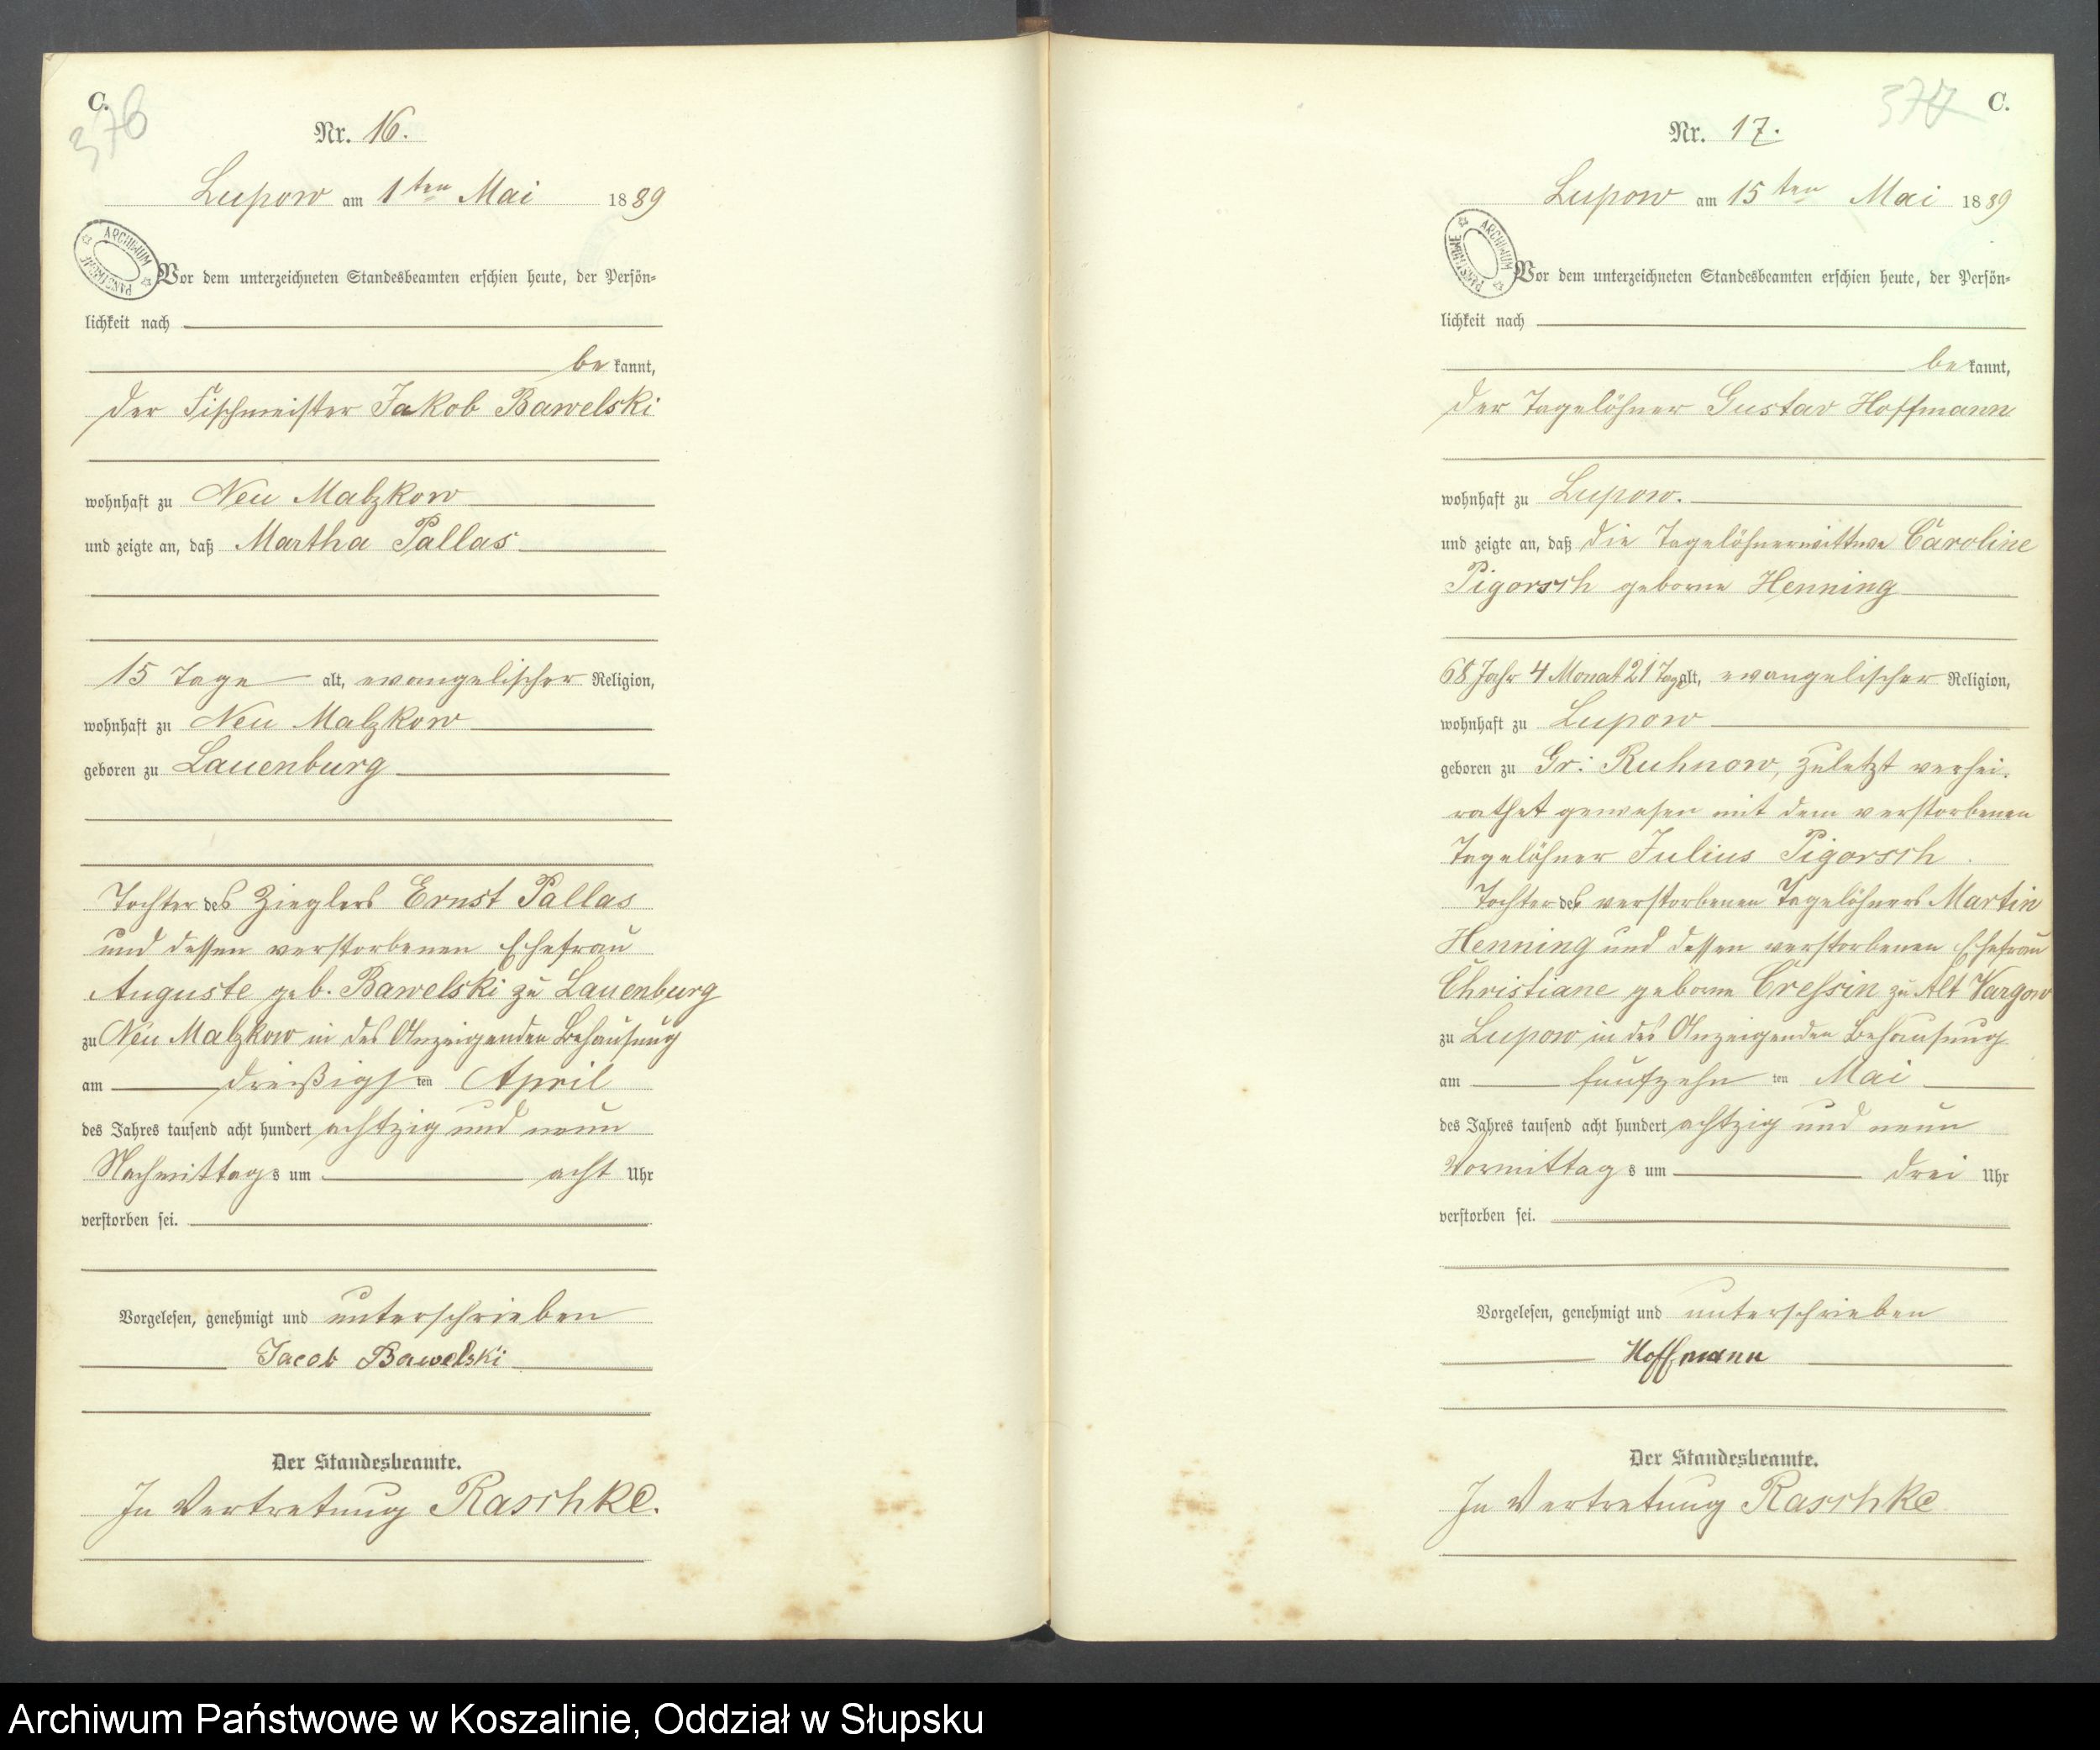 C.
376
Nr. 16.
Lupow am 1ten Mai 1889
ARCHIWUM PAŃSTWOWE
Vor dem unterzeichneten Standesbeamten erschien heute, der Persön-
lichkeit nach
bekannt,
der Fischmeister Jakob Bawelski
wohnhaft zu Neu Malzkow
und zeigte an, daß Martha Pallas
15 Tage alt, evangelischer Religion,
wohnhaft zu Neu Malzkow
geboren zu Lauenburg
Tochter des Zieglers Ernst Pallas
und dessen verstorbenen Ehefrau
Auguste geb. Bawelski zu Lauenburg
zu Neu Malzkow in des Anzeigenden Behausung
am dreißigsten April
des Jahres tausend acht hundert achtzig und neun
Nachmittags um acht Uhr
verstorben sei.
Vorgelesen, genehmigt und unterschrieben
Jacob Bawelski
Der Standesbeamte.
In Vertretung Raschke.
377
C.
Nr. 17.
Lupow am 15ten Mai 1889
ARCHIWUM PAŃSTWOWE
Vor dem unterzeichneten Standesbeamten erschien heute, der Persön-
lichkeit nach
bekannt,
der Tagelöhner Gustav Hoffmann
wohnhaft zu Lupow.
und zeigte an, daß die Tagelöhnerwittwe Caroline
Pigorsch geborne Henning
68 Jahr 4 Monat 21 Tage alt, evangelischer Religion,
wohnhaft zu Lupow
geboren zu Gr: Ruhnow, zuletzt verhei-
rathet gewesen mit dem verstorbenen
Tagelöhner Julius Pigorsch.
Tochter des verstorbenen Tagelöhners Martin
Henning und dessen verstorbenen Ehefrau
Christiane geborne Cressin zu Alt Vargow
zu Lupow in des Anzeigenden Behausung
am fünfzehnten Mai
des Jahres tausend acht hundert achtzig und neun
Vormittags um drei Uhr
verstorben sei.
Vorgelesen, genehmigt und unterschrieben
Hoffmann
Der Standesbeamte.
In Vertretung Raschke
Archiwum Państwowe w Koszalinie, Oddział w Słupsku